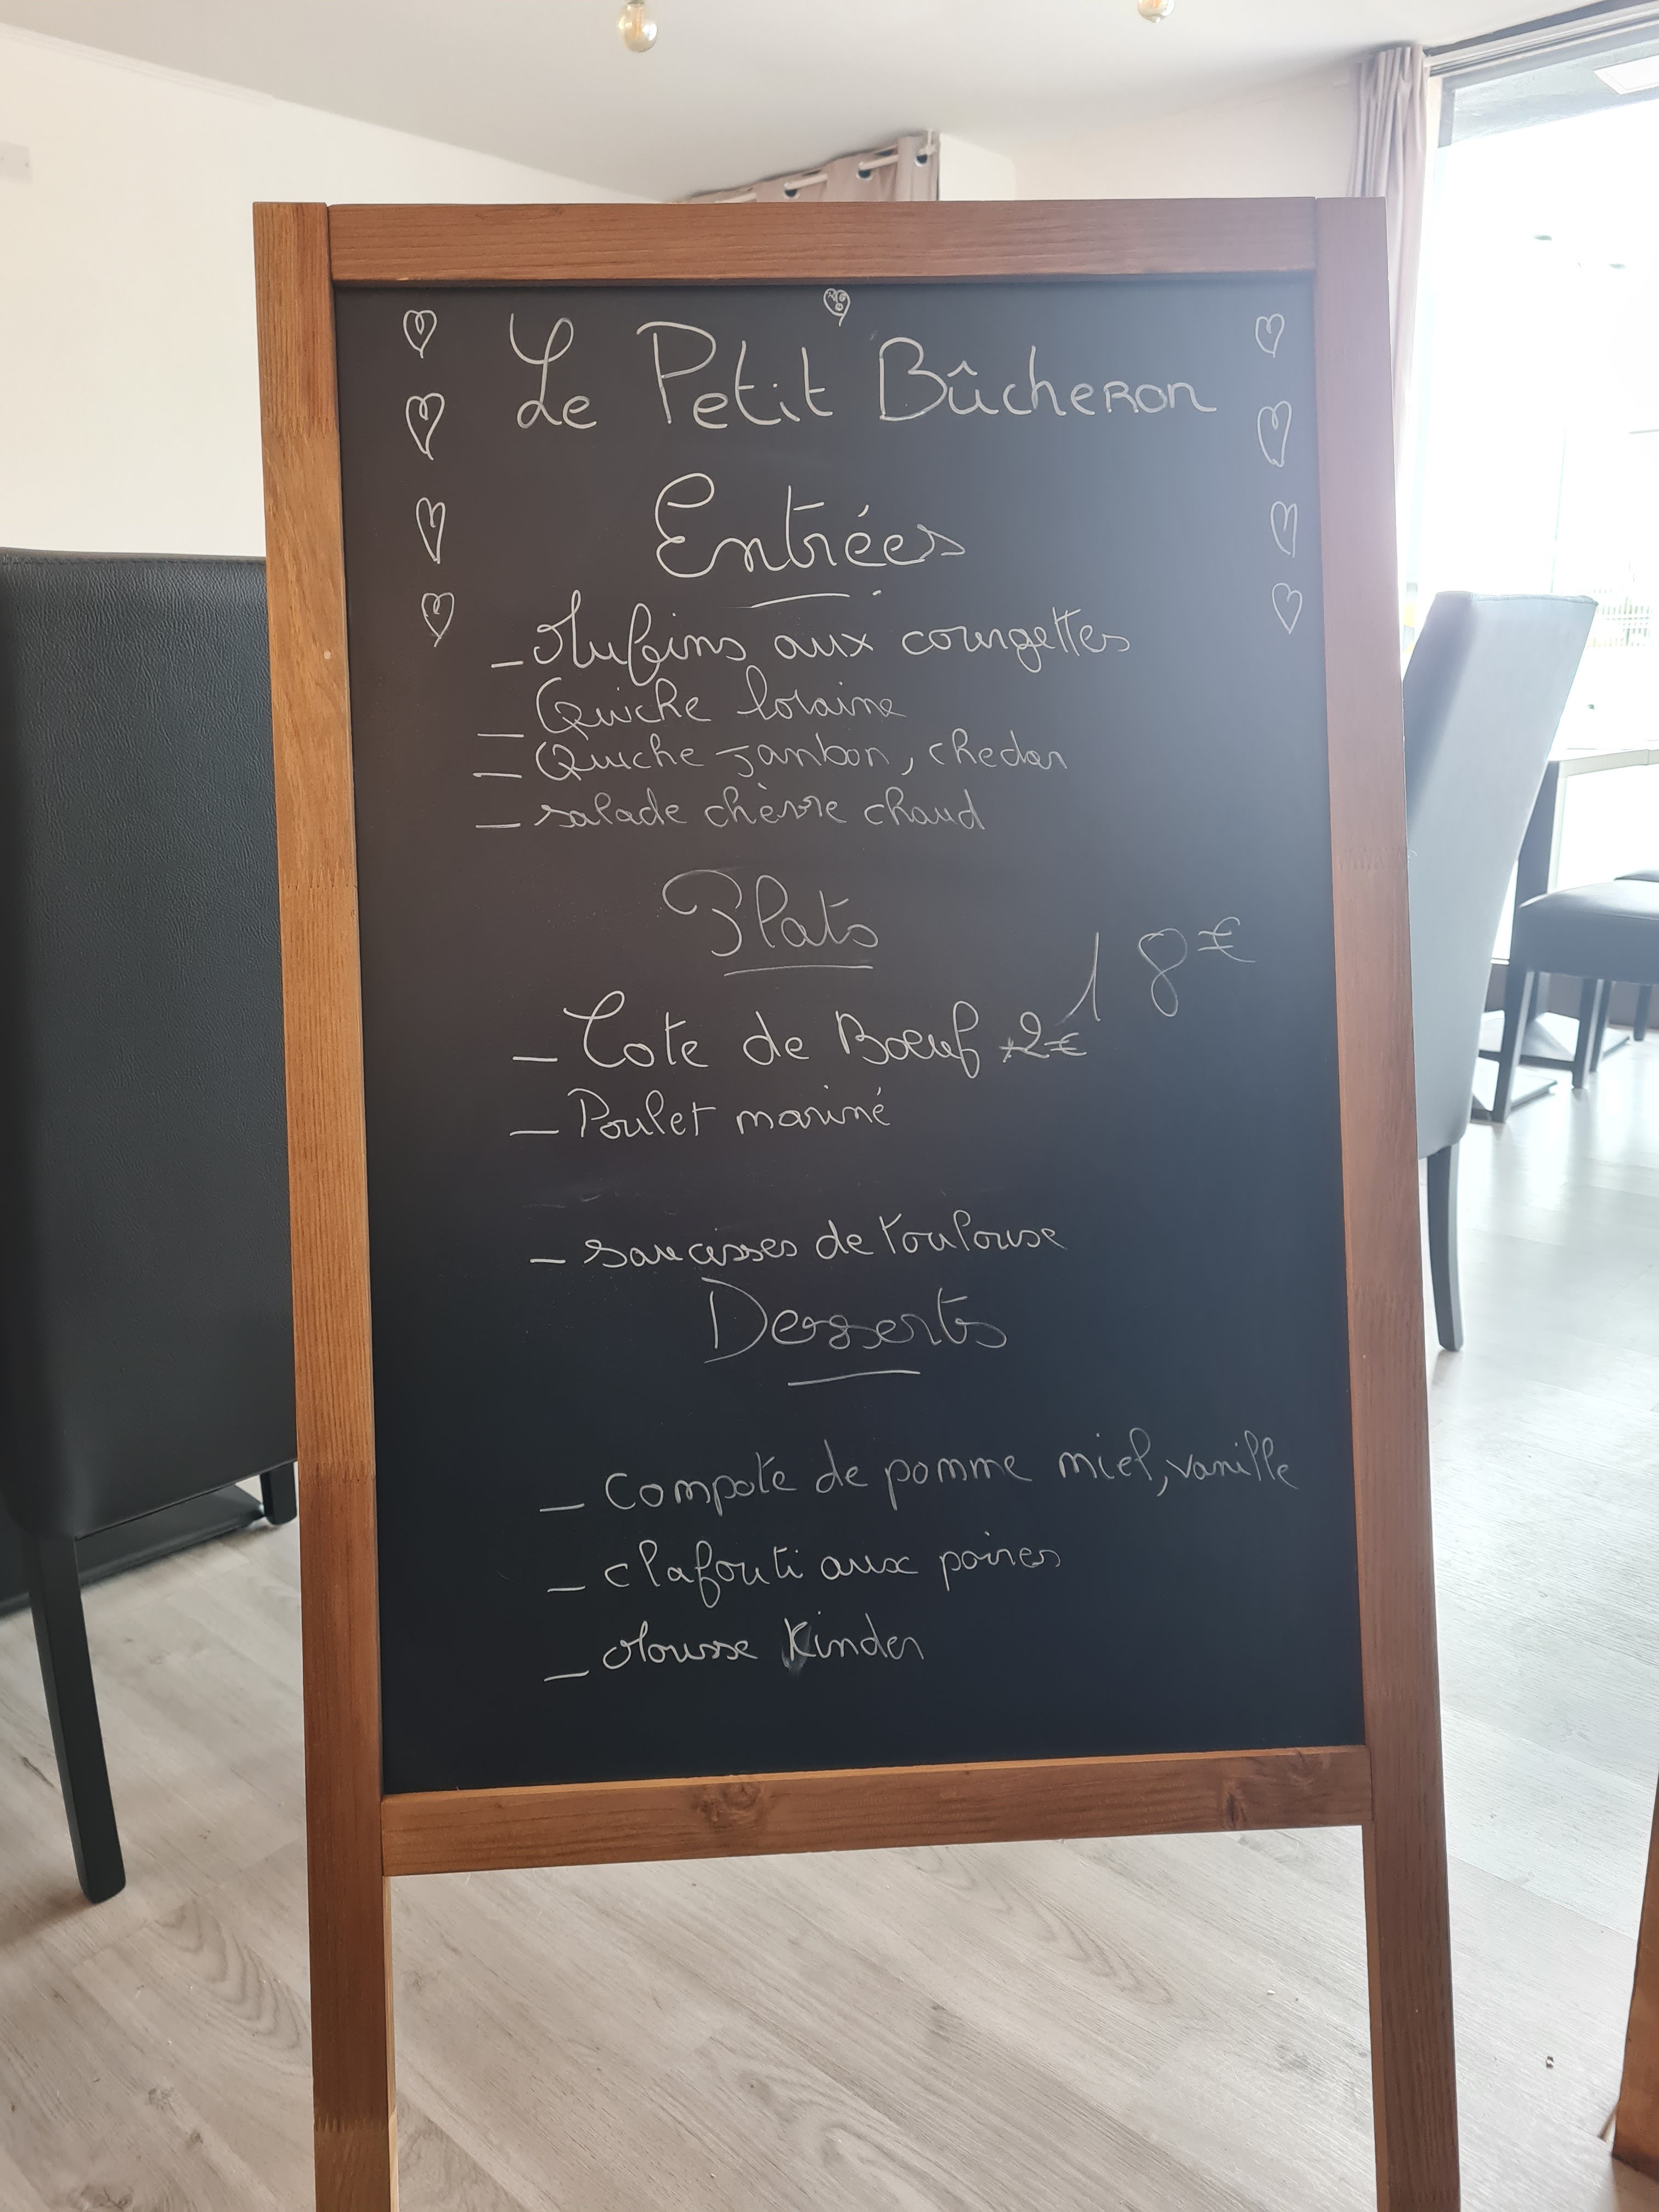 Le Petit Bûcheron
Entrées
_ Mufins aux courgettes
_ Quiche loraine
_ Quiche jambon, chedar
_ salade chèvre chaud
Plats
18€
_ Cote de Boeuf +2€
_ Poulet mariné
_ saucisses de toulouse
Desserts
_ Compote de pomme miel, vanille
_ clafouti aux poires
_ Mousse Kinder